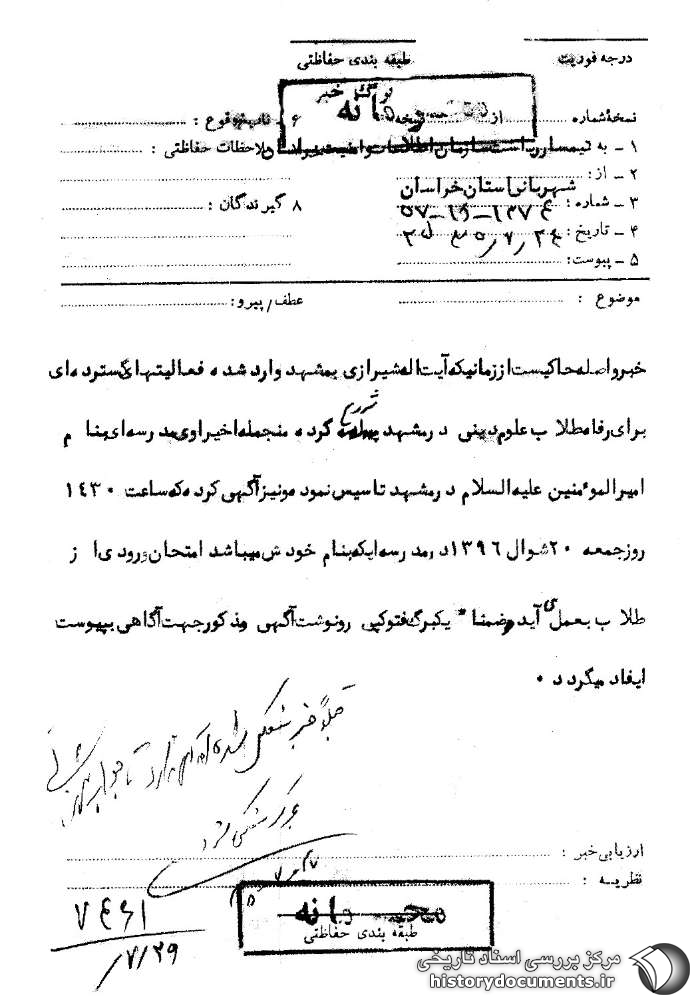 درجه فوریت
طبقه بندی حفاظتی
خبر
محرمانه
نسخهٔ شماره از نسخه
۶ - تاریخ وقوع :
۱ - به تیمسار ریاست سازمان اطلاعات و امنیت خراسان
ملاحظات حفاظتی :
۲ - از :
شهربانی استان خراسان
۳ - شماره :
۸ گیرندگان :
۴ - تاریخ :
۵ - پیوست :
موضوع :
عطف / پیرو :
خبر واصله حاکیست از زمانیکه آیت اله شیرازی بمشهد وارد شده فعالیتهای گسترده ای
برای رفاه طلاب علوم دینی در مشهد شروع کرده منجمله اخیرا وی مدرسه ای بنام
امیرالموئمنین علیه السلام در مشهد تاسیس نموده و نیز آگهی کرده که ساعت ۱۴۳۰
روز جمعه ۲۰ شوال ۱۳۹۶ در مدرسه ایکه بنام خودش میباشد امتحان ورودی از
طلاب بعمل می آید و ضمنا" یکبرگ فتوکپی رونوشت آگهی مذکور جهت آگاهی بپیوست
ایفاد میگردد .
ارزیابی خبر :
نظریه :
محرمانه
طبقه بندی حفاظتی
۷/۲۹
مرکز بررسی اسناد تاریخی
historydocuments.ir